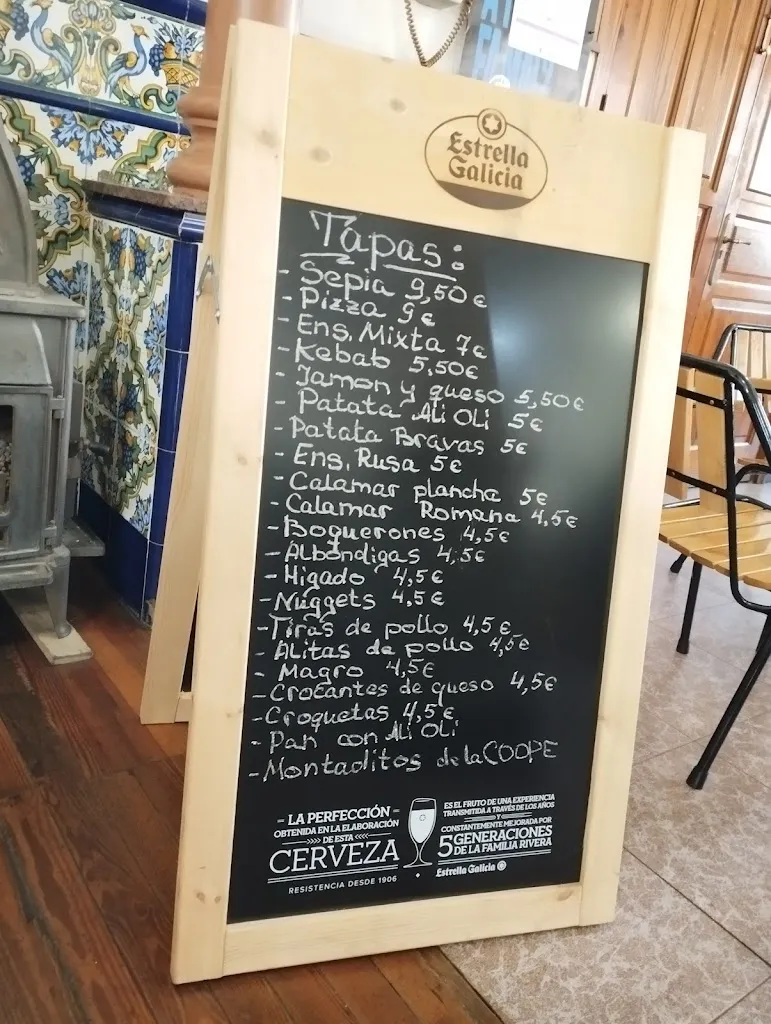 Estrella
Galicia
Tapas:
- Sepia 9,50€
- Pizza 9€
- Ens. Mixta 7€
- Kebab 5,50€
- Jamon y queso 5,50€
- Patata Ali Oli 5€
- Patata Bravas 5€
- Ens. Rusa 5€
- Calamar plancha 5€
- Calamar Romana 4,5€
- Boquerones 4,5€
- Albóndigas 4,5€
- Higado 4,5€
- Nuggets 4,5€
- Tiras de pollo 4,5€
- Alitas de pollo 4,5€
- Magro 4,5€
- Crocantes de queso 4,5€
- Croquetas 4,5€
- Pan con Ali Oli
- Montaditos de la COOPE
- LA PERFECCIÓN -
OBTENIDA EN LA ELABORACIÓN
DE ESTA
CERVEZA
RESISTENCIA DESDE 1906
ES EL FRUTO DE UNA EXPERIENCIA
TRANSMITIDA A TRAVÉS DE LOS AÑOS
Y
CONSTANTEMENTE MEJORADA POR
5 GENERACIONES
DE LA FAMILIA RIVERA
Estrella Galicia